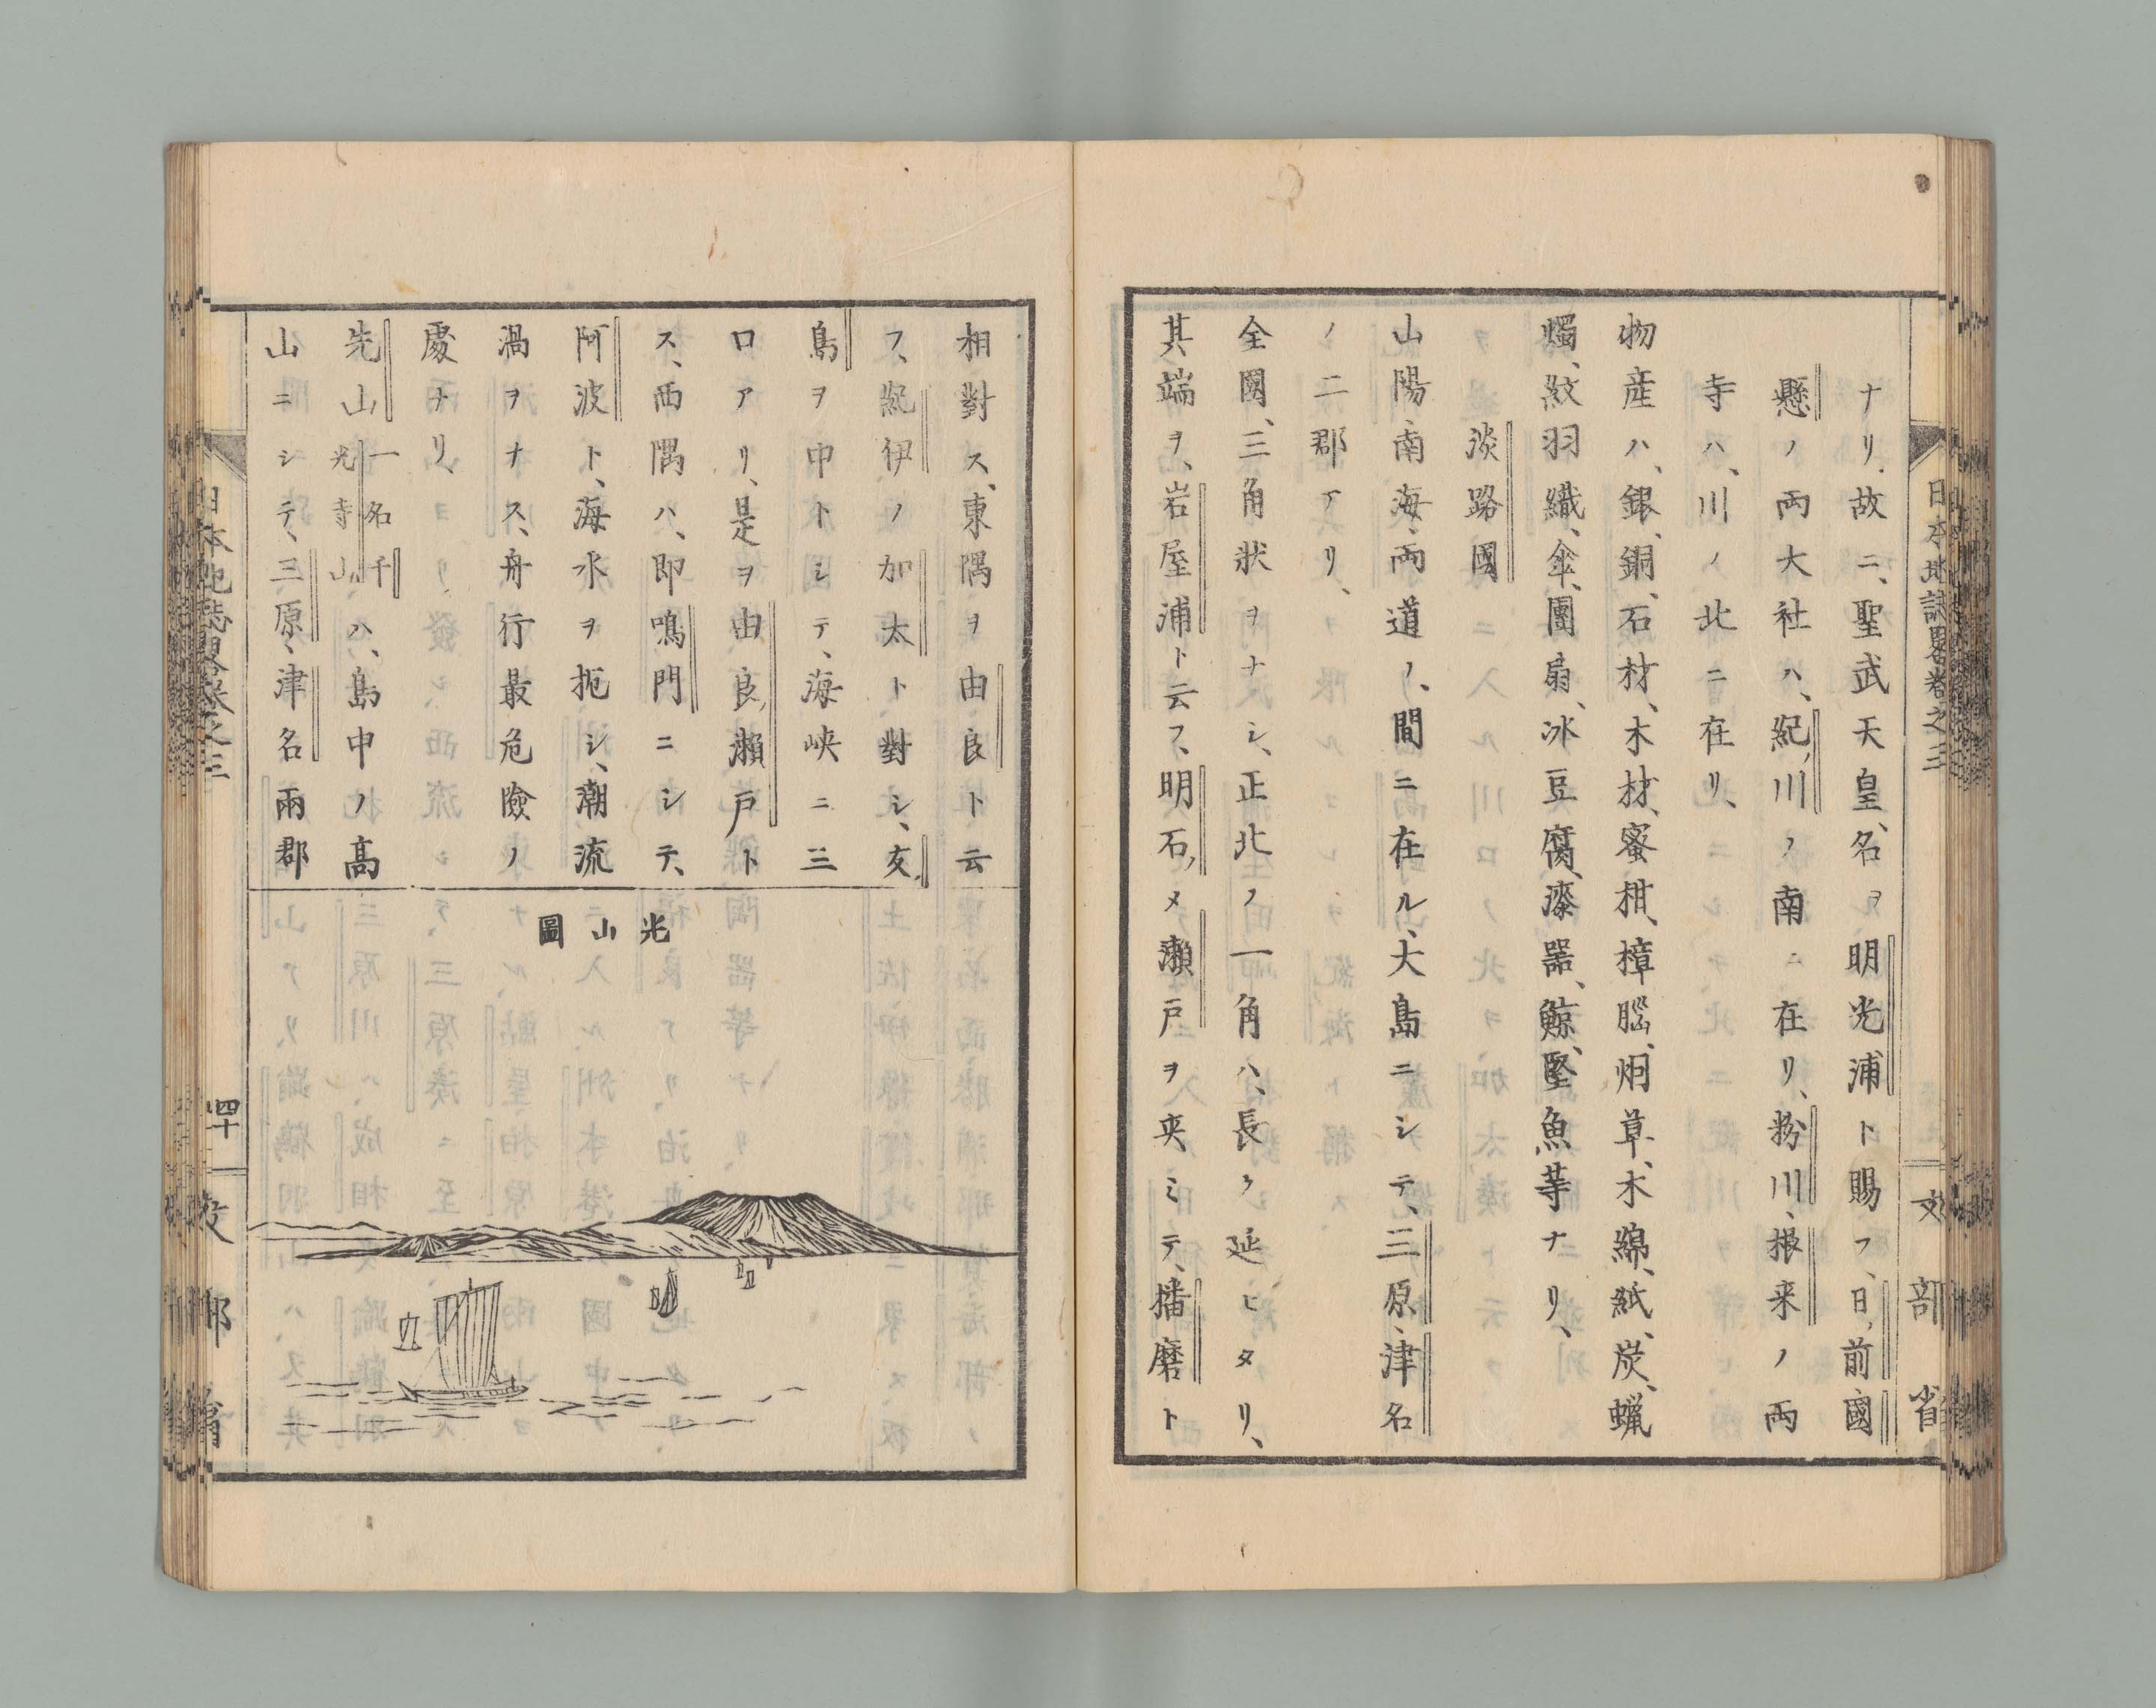 ナリ、故ニ、聖武天皇、名ヲ明光浦ト賜フ、日前國
懸ノ兩大社ハ、紀ノ川ノ南ニ在リ、粉川、根来ノ兩
寺ハ、川ノ北ニ在リ、
物産ハ、銀、銅、石材、木材、蜜柑、樟腦、烟草、木綿、紙、炭、蝋
燭、紋羽織、傘、團扇、氷豆腐、漆器、鯨、堅魚等ナリ、
淡路國
山陽、南海、兩道ノ、間ニ在ル、大島ニシテ、三原、津名
ノ二郡アリ、
全國、三角狀ヲナシ、正北ノ一角ハ、長ク延ヒタリ、
其端ヲ、岩屋浦ト云フ、明石ノ瀬戸ヲ夾ミテ、播磨ト
日本地誌畧巻之三
文部省
相對ス、東隅ヲ由良ト云
フ、紀伊ノ加太ト對シ、友
島ヲ中トシテ、海峡ニ三
口アリ、是ヲ由良ノ瀬戸ト
ス、西隅ハ、即鳴門ニシテ、
阿波ト、海水ヲ扼シ、潮流
渦ヲナス、舟行最危險ノ
處ナリ、
先山一名千光寺山ハ、島中ノ高
山ニシテ、三原、津名兩郡
光山圖
日本地誌畧巻之三
四十
文部省